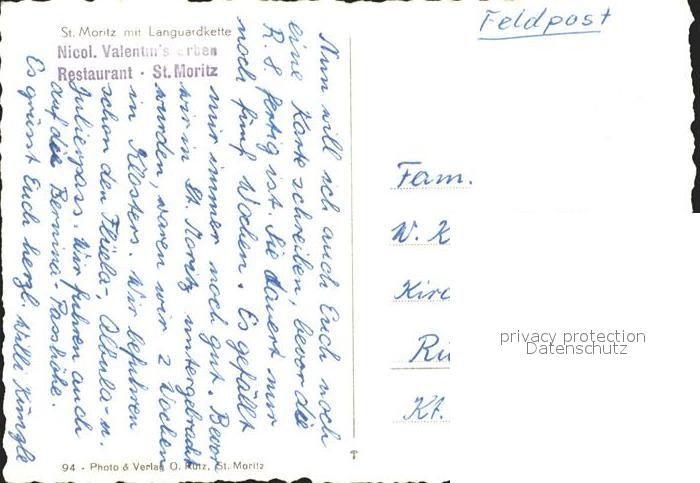 St. Moritz mit Languardkette
Nicol. Valentin's Erben
Restaurant · St. Moritz
Nun will ich auch Euch noch
eine Karte schreiben, bevor die
R. S. fertig ist. Sie dauert nur
noch fünf Wochen. Es gefällt
mir immer noch gut. Bevor
wir in St. Moritz untergebracht
wurden, waren wir 2 Wochen
in Klosters. Wir befuhren
schon den Flüela-, Albula- u.
Julierpass. Wir fuhren auch
auf die Bernina-Passhöhe.
Es grüsst Euch herzl. Willi Künzle
94 - Photo & Verlag O. Rutz, St. Moritz
Feldpost
Fam.
W. K
Kirc
Rü
Kt.
privacy protection
Datenschutz